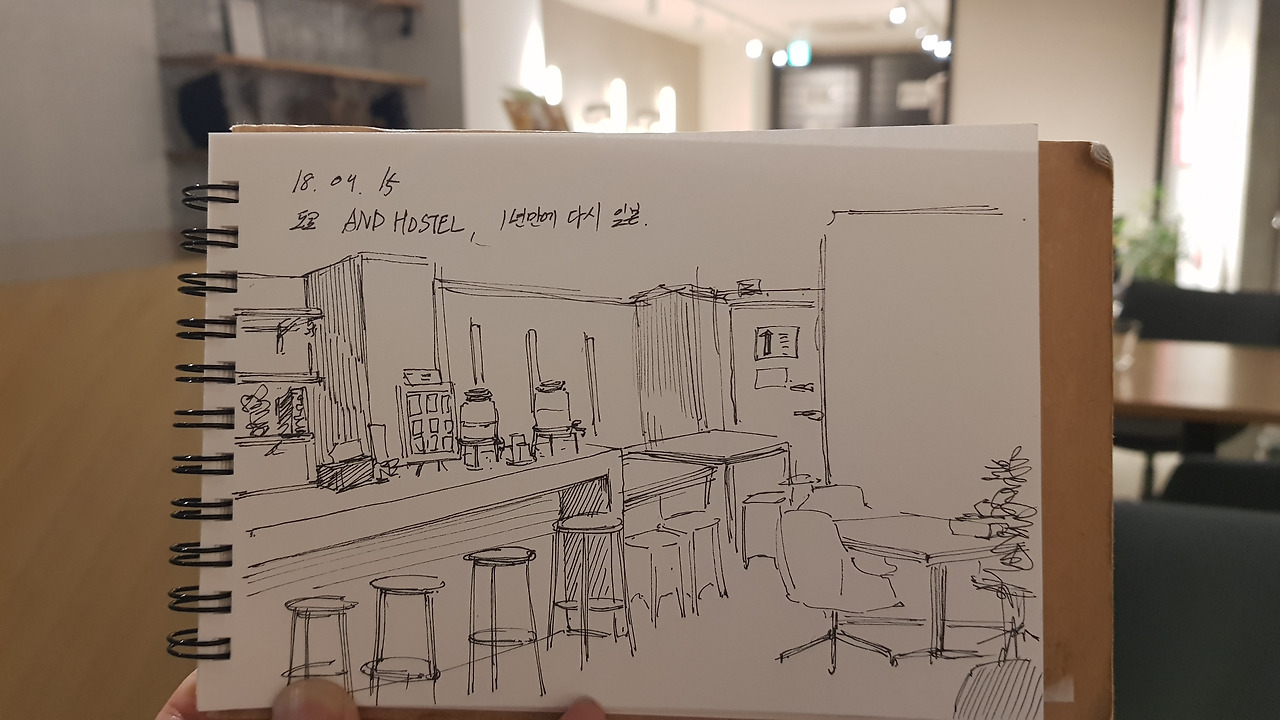 18. 04. 15
도쿄 AND HOSTEL, 1년만에 다시 일본.